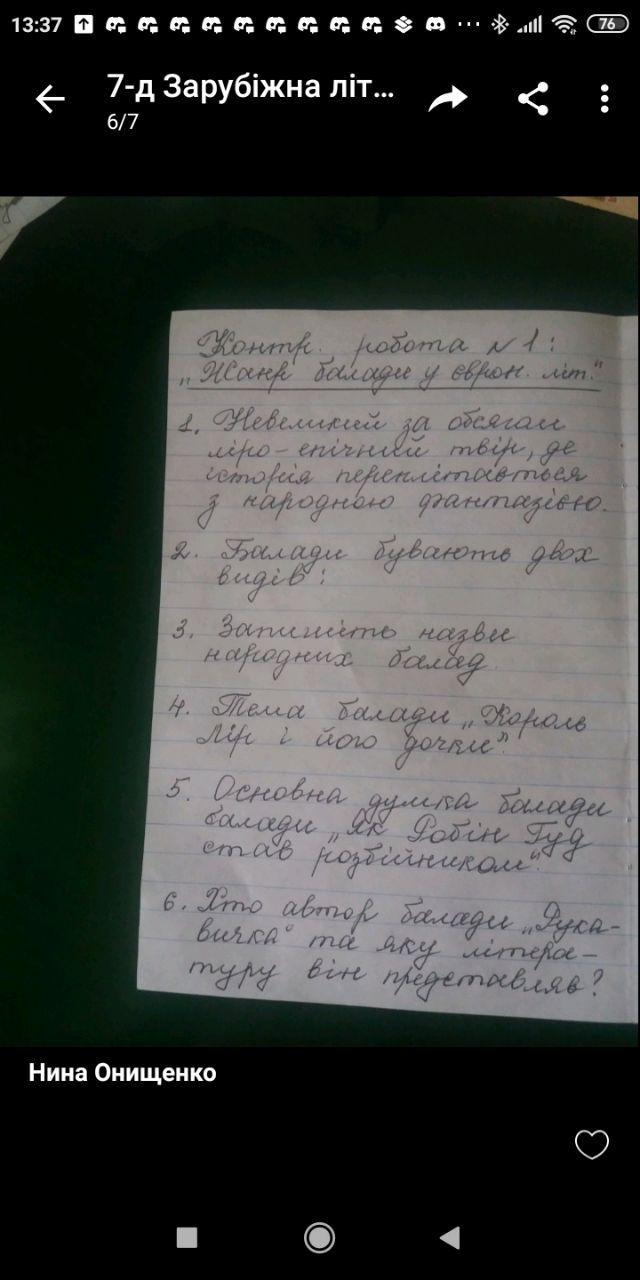 13:37
76
7-д Зарубіжна літ...
6/7
Контр. робота №1:
„Жанр балади у європ. літ."
1. Невеликий за обсягом
ліро-епічний твір, де
історія переплітається
з народною фантазією.
2. Балади бувають двох
видів:
3. Запишіть назви
народних балад.
4. Тема балади „Король
Лір і його дочки".
5. Основна думка балади
балади „Як Робін Гуд
став розбійником".
6. Хто автор балади „Рука-
вичка" та яку літера-
туру він представляв?
Нина Онищенко